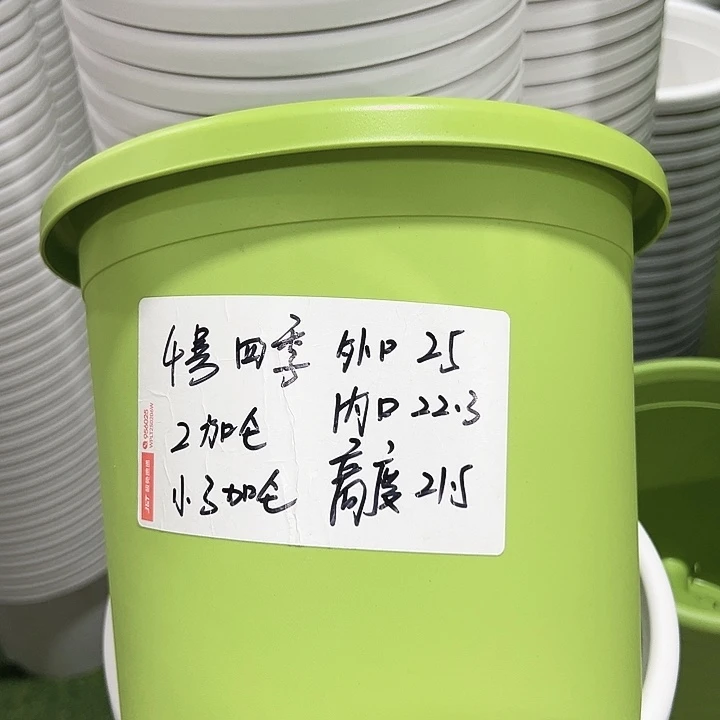 4号 四季 外口 25
2加仑 内口 22.3
小3加仑 高度 21.5
956025
J&T